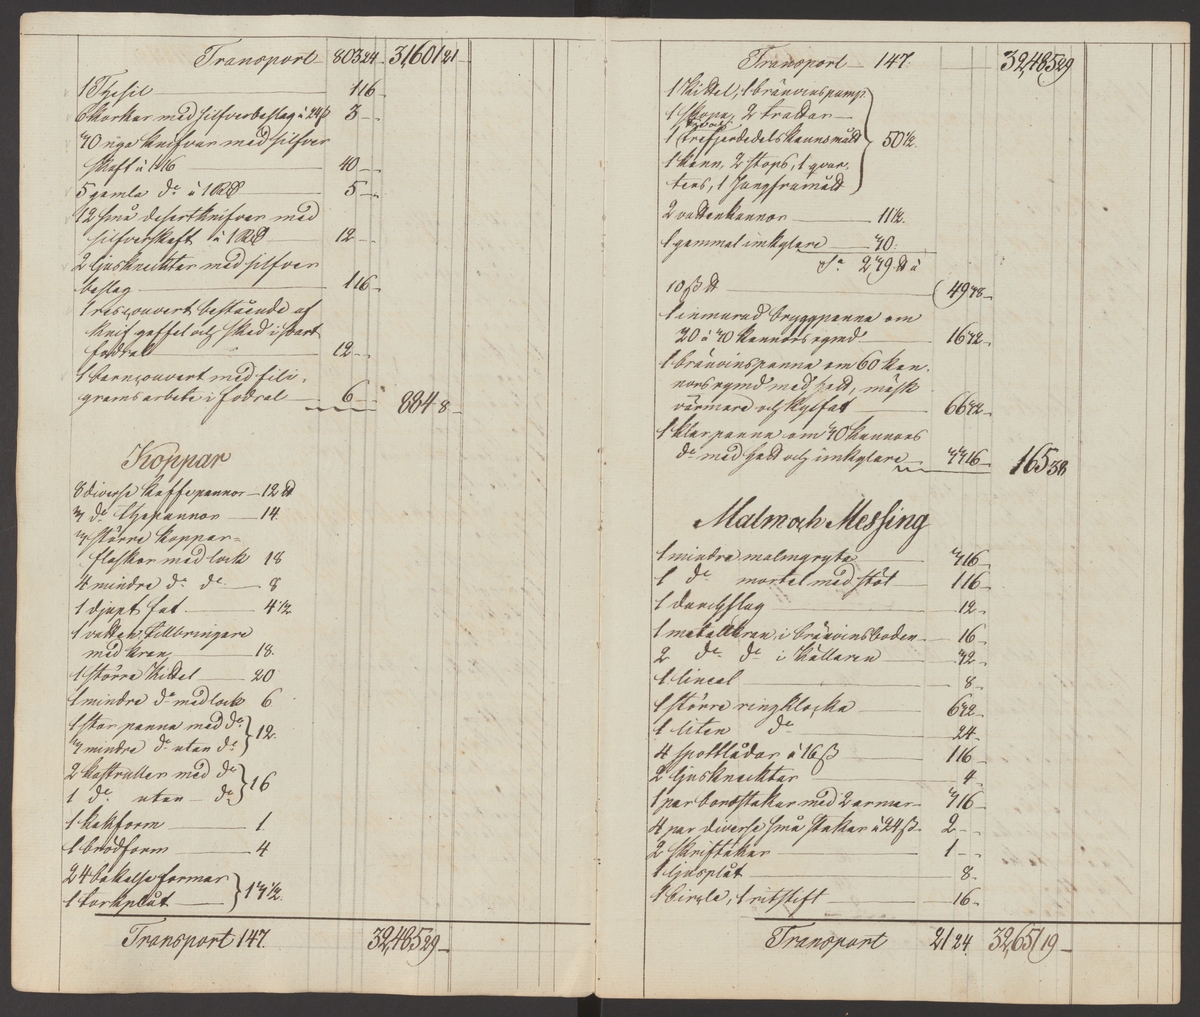 Transport 803 24 31,601 21
1 Thesil 1 16
6 korkar med silfverbeslag à 24 ß 3 -
40 nya knifvar med silfver
skaft à 1 40 -
5 gamla do à 1 Rd 5 -
12 små desertknifvar med
silfverskaft à 1 Rd 12 -
2 ljusknektar med silfver
beslag 1 16
1 rescouvert bestående af
knif gaffel och sked i svart
fodral 12 -
1 barncouvert med fili-
gramsarbete i fodral 6 - 884 8
Koppar
8 diverse kaffepannor 12 ℔
3 do thepannor 14
4 större koppar-
flaskor med lock 18
4 mindre do do 8
1 djupt fat 4 1/2
1 vatten tillbringare
med kran 18
1 större kittel 20
1 mindre do med lock 6
1 stor panna med do
4 mindre do utan do } 12
2 kastruller med do
1 do utan do } 16
1 kakform 1
1 brödform 4
24 bakelseformar
1 torkplåt } 13 1/2
Transport 147 32,485 29
Transport 147 32,485 29
1 kittel, 1 bränvinspump
1 skopa, 2 trattar
1 trefjerdedelskannsmått
1 kann, 2 stops, 1 qvar-
ters, 1 Jungfrumått } 50 1/2
2 vattenkannor 11 1/2
1 gammal imkylare 70
Sa 279 ℔ à
10 ß ℔ 49 78
1 inmurad bryggpanna om
30 à 40 kannors rymd 16 32
1 bränvinspanna om 60 kan-
nors rymd med hatt, mäsk
värmare och kylfat 66 32
1 klarpanna om 40 kannors
do med hatt och imkylare 33 16 165 38
Malm och Messing
1 mindre malmgryta 3 16
1 do mortel med stöt 1 16
1 durchslag 12
1 metallkran i bränvinsboden 16
2 do do i källaren 32
1 lineal 8
1 större ringklocka 6 32
1 liten do 24
4 spottlådor à 16 ß 1 16
2 ljusknektar 4
1 par bordstakar med 2 armar 3 16
4 par diverse små stakar à 24 ß 2 -
2 skrifstakar 1 -
1 ljusplåt 8
1 circle, 1 ritstift 16
Transport 21 24 32,651 19